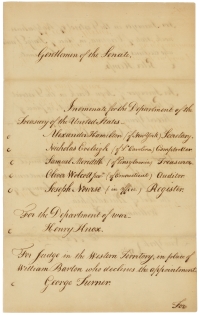 Gentlemen of the Senate.
I nominate for the Department of the
Treasury of the United States
c Alexander Hamilton (of New York) Secretary.
c Nicholas Eveleigh (of So Carolina) Comptroller
c Samuel Meredith (of Pensylvania) Treasurer
c Oliver Wolcott Junr (of Connecticut) Auditor
c Joseph Nourse (in office) Register.
For the Department of war.
c Henry Knox.
For Judge in the Western Territory, in place of
William Barton who declines the appointment
c George Turner.
For